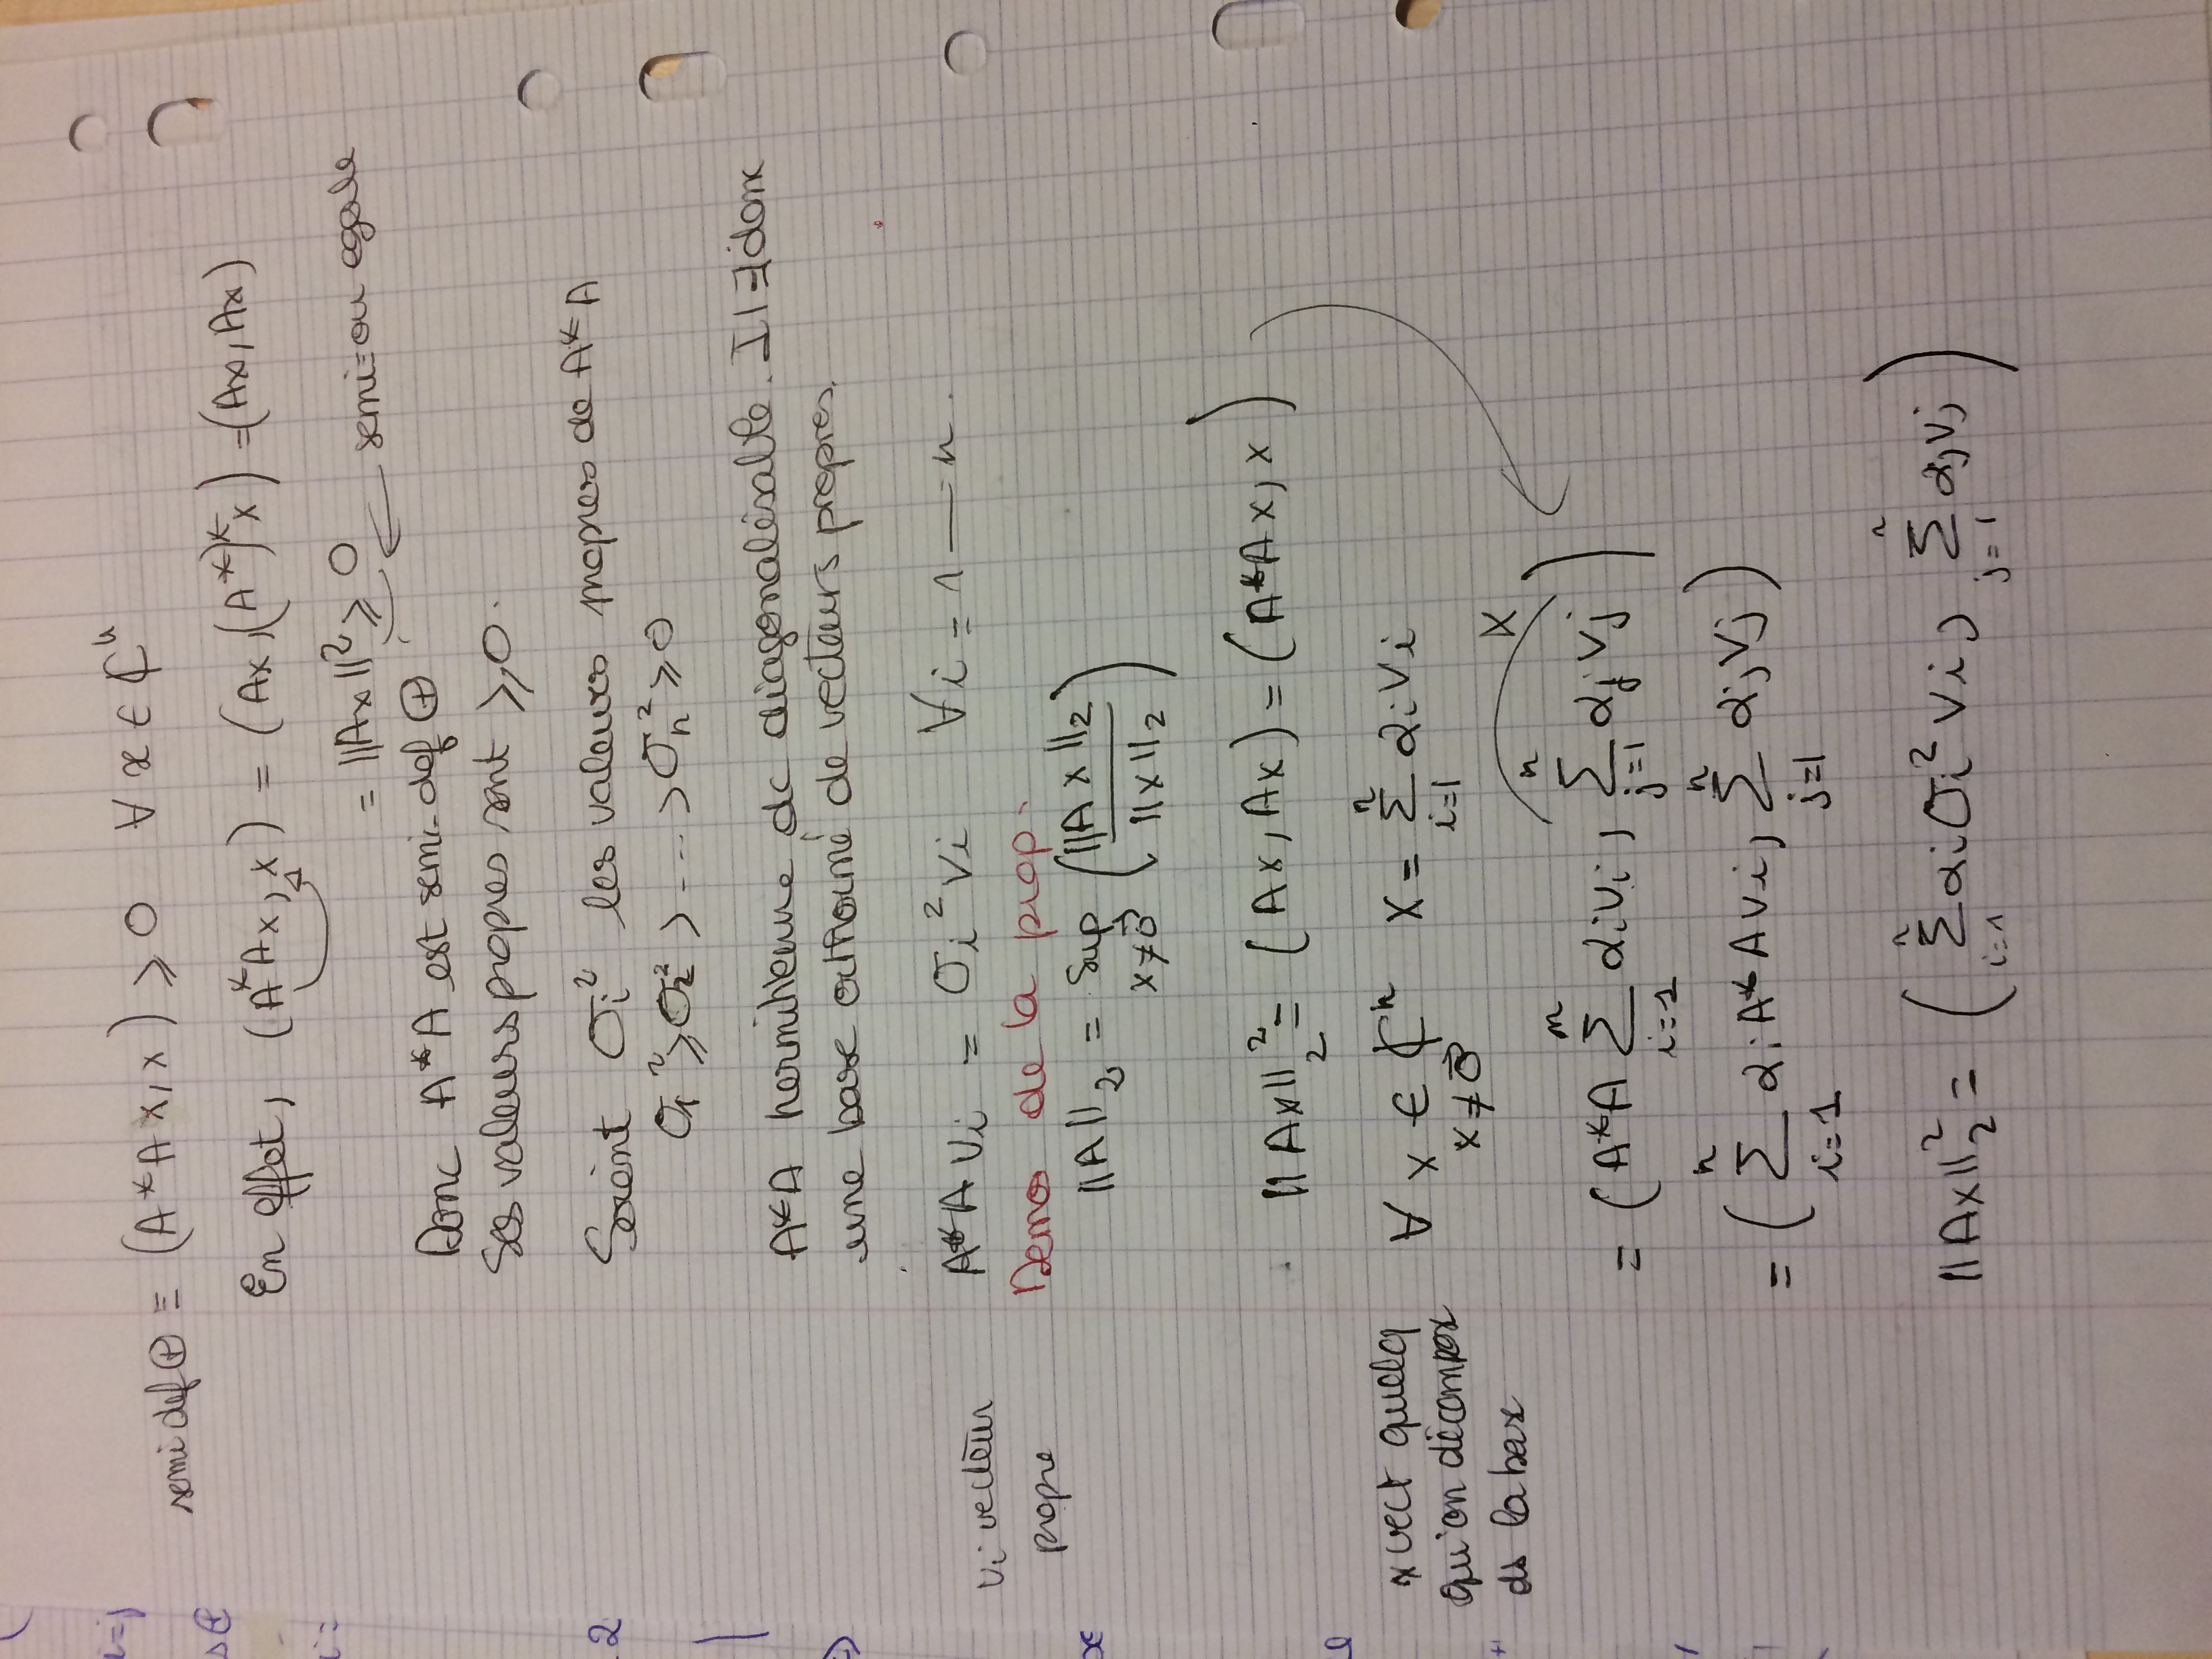 semi def ⊕ ≡ (A*Ax, x) ⩾ 0 ∀ x ∈ ℂⁿ
En effet, (A*Ax, x) = (Ax, (A*)*x) = (Ax, Ax)
= ||Ax||² ⩾ 0 ← semi = ou egale
Donc A*A est semi-def ⊕
Ses valeurs propres sont ⩾ 0.
Soient σi² les valeurs propres de A*A
σ1² ⩾ σ2² > --- > σn² ⩾ 0
A*A hermitienne dc diagonalisable. Il ∃ donc
une base orthormé de vecteurs propres.
A*A vi = σi² vi ∀i = 1 — n.
vi vecteur
propre
Demos de la prop.
||A||₂ = Sup x≠0⃗ (||Ax||₂ / ||x||₂)
||Ax||₂² = (Ax, Ax) = (A*Ax, x)
x vect quelq
qu'on décompose
ds la base
∀ x ∈ ℂⁿ x≠0⃗ x = Σ_{i=1}^{n} αi vi
x
= (A*A Σ_{i=1}^{n} αi vi, Σ_{j=1}^{n} αj vj)
= (Σ_{i=1}^{n} αi A*A vi, Σ_{j=1}^{n} αj vj)
||Ax||₂² = (Σ_{i=1}^{n} αi σi² vi, Σ_{j=1}^{n} αj vj)
i=j
s⊕
i=
2